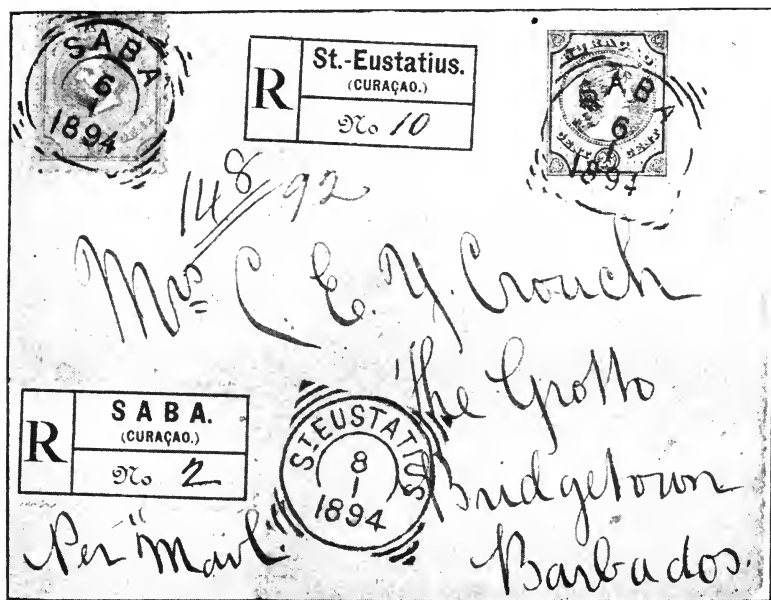 SABA
6
1
1894
R
St.-Eustatius.
(CURAÇAO.)
No 10
CURAÇAO
SABA
6
1
1894
CENT CENT
148/92
Mrs C. E. Y. Crouch
The Grotto
Bridgetown
Barbados.
R
SABA.
(CURAÇAO.)
No 2
ST EUSTATIUS
8
1
1894
Per "Mail.